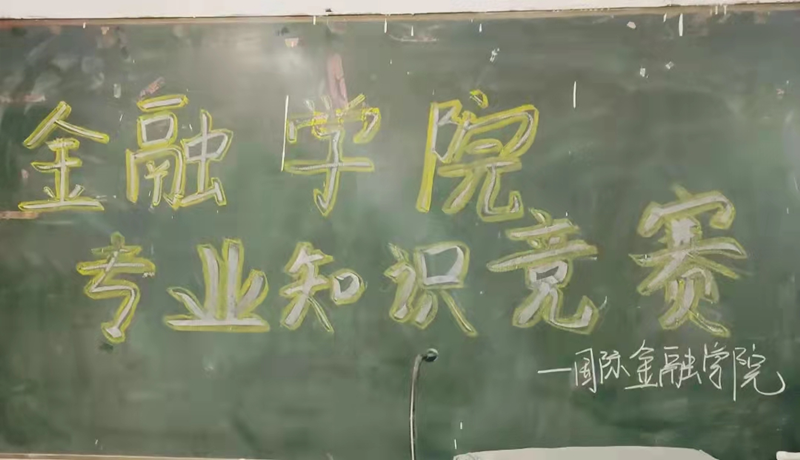 金融学院
专业知识竞赛
—国际金融学院